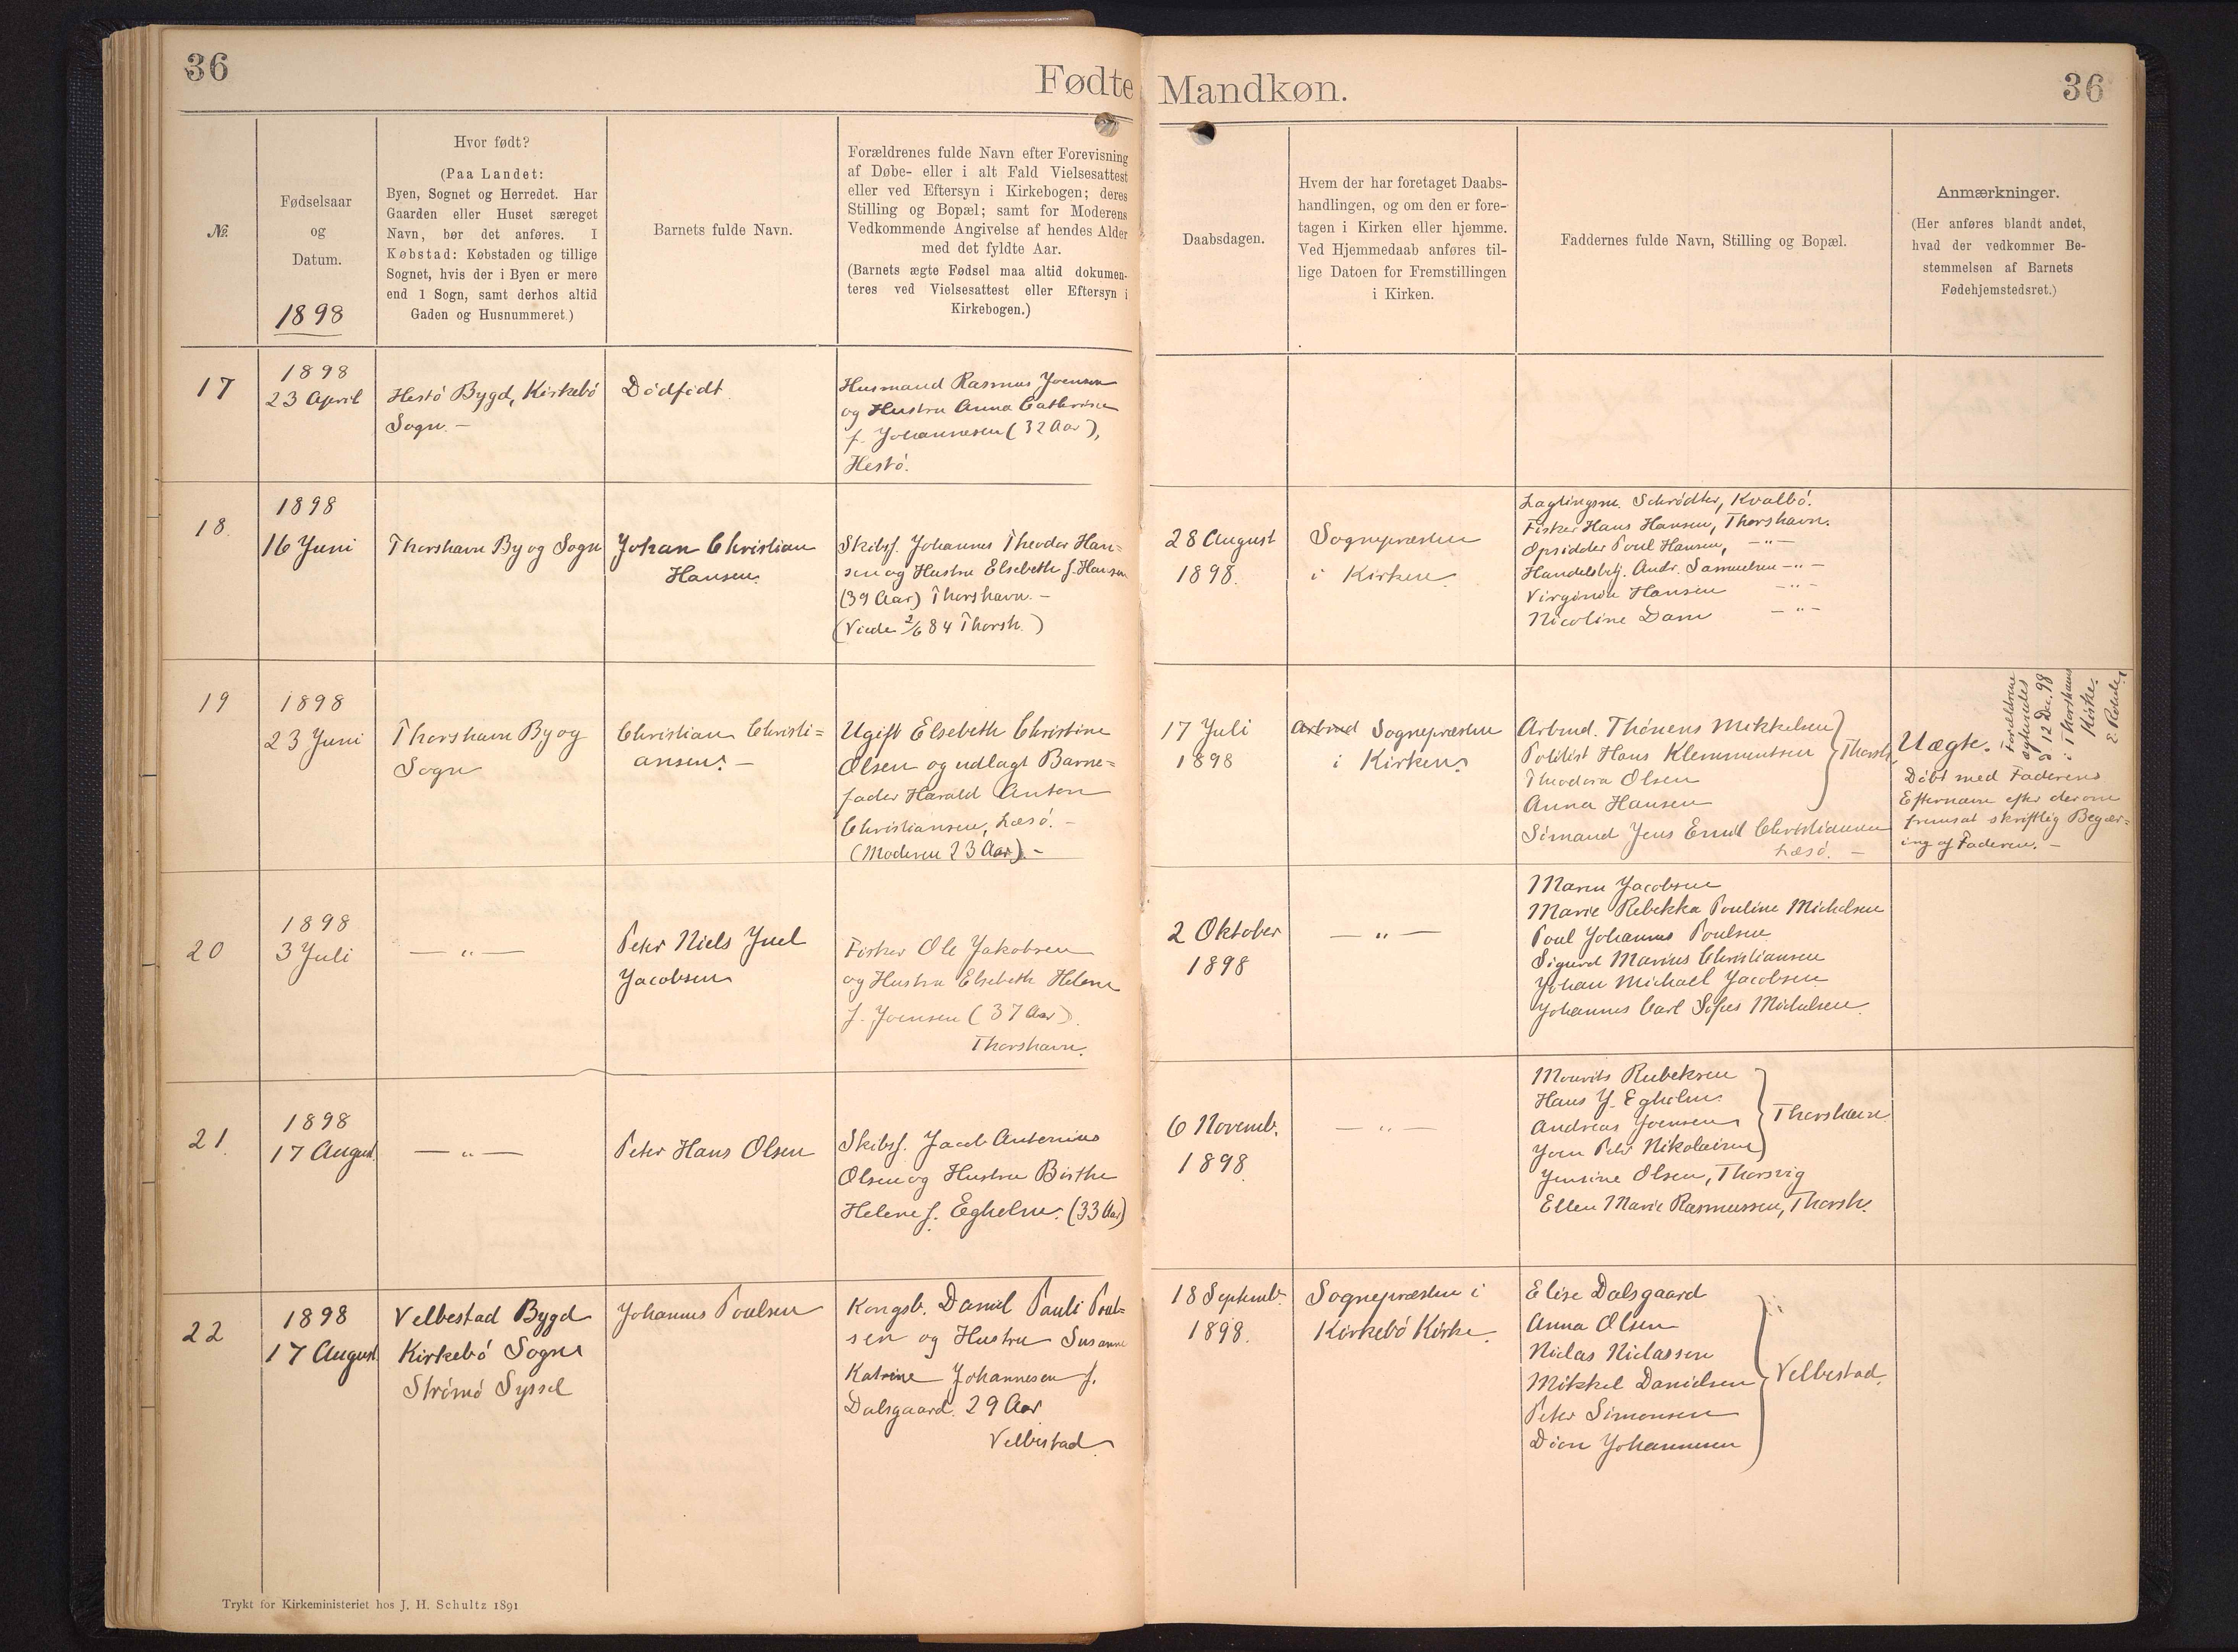 36
Fødte Mandkøn.
36
№.
Fødselsaar
og
Datum.
1898
Hvor født?
(Paa Landet:
Byen, Sognet og Herredet. Har
Gaarden eller Huset særeget
Navn, bør det anføres. I
Købstad: Købstaden og tillige
Sognet, hvis der i Byen er mere
end 1 Sogn, samt derhos altid
Gaden og Husnummeret.)
Barnets fulde Navn.
Forældrenes fulde Navn efter Forevisning
af Døbe- eller i alt Fald Vielsesattest
eller ved Eftersyn i Kirkebogen; deres
Stilling og Bopæl; samt for Moderens
Vedkommende Angivelse af hendes Alder
med det fyldte Aar.
(Barnets ægte Fødsel maa altid dokumen-
teres ved Vielsesattest eller Eftersyn i
Kirkebogen.)
Daabsdagen.
Hvem der har foretaget Daabs-
handlingen, og om den er fore-
tagen i Kirken eller hjemme.
Ved Hjemmedaab anføres til-
lige Datoen for Fremstillingen
i Kirken.
Faddernes fulde Navn, Stilling og Bopæl.
Anmærkninger.
(Her anføres blandt andet,
hvad der vedkommer Be-
stemmelsen af Barnets
Fødehjemstedsret.)
17
1898
23 April
Hestö Bygd, Kirkebö
Sogn. -
Dödfödt.
Husmand Rasmus Joensen
og Hustru Anna Cathrine
f. Johannesen (32 Aar),
Hestö.
18.
1898
16 Juni
Thorshavn By og Sogn
Johan Christian
Hansen.
Skibsf. Johannes Theodor Han=
sen og Hustru Elsebeth f. Hansen
(39 Aar) Thorshavn. -
(Viede 2/6 84 Thorsh.)
28 August
1898.
Sognepræsten
i Kirken.
Lagtingsm. Schrödter, Kvalbö.
Fisker Hans Hansen, Thorshavn.
Opsidder Poul Hansen, - " -
Handelsbetj. Andr. Samuelsen - " -
Virginia Hansen - " -
Nicoline Dam - " -
19
1898
23 Juni
Thorshavn By og
Sogn
Christian Christi=
ansen. -
Ugift Elsebeth Christine
Olsen og udlagt Barne=
fader Harald Anton
Christiansen, Læsö. -
(Moderen 23 Aar). -
17 Juli
1898
Arbmd Sognepræsten
i Kirken.
Arbmd. Thönens Mikkelsen
Politist Hans Klemmentsen
Theodora Olsen
Anna Hansen
Thorsh.
Sömand Jens Emil Christiansen
Læsö. -
Uægte.
Forældrene
ægteviedes
d 12 Dec. 98
i Thorshavns
Kirke.
Döbt med Faderens
Efternavn efter derom
fremsat skriftlig Begær=
ing af Faderen. -
20
1898
3 Juli
- " -
Peter Niels Juel
Jacobsen
Fisker Ole Jakobsen
og Hustru Elsebeth Helene
f. Joensen (37 Aar).
Thorshavn.
2 Oktober
1898
- " -
Maren Jacobsen
Marie Rebekka Pouline Michelsen
Poul Johannes Poulsen
Sigurd Marius Christiansen
Johan Michael Jacobsen
Johannes Carl Sofus Michelsen.
21.
1898
17 August.
- " -
Peter Hans Olsen
Skibsf. Jacob Antonius
Olsen og Hustru Birthe
Helene f. Egholm. (33 Aar)
6 Novemb.
1898.
- " -
Mourits Rubeksen
Hans J. Egholm
Andreas Joensen
Joen Peter Nikolaisen
Thorshavn
Jensine Olsen, Thorsvig
Ellen Marie Rasmussen, Thorsh.
22
1898
17 August
Velbestad Bygd
Kirkebö Sogn
Strömö Syssel
Johannes Poulsen
Kongsb. Daniel Pauli Poul=
sen og Hustru Susanne
Katrine Johannesen f.
Dalsgaard. 29 Aar
Velbestad.
18 Septemb.
1898.
Sognepræsten i
Kirkebö Kirke.
Elise Dalsgaard
Anna Olsen
Niclas Niclassen
Mikkel Danielsen
Peter Simonsen
Johannesen
Velbestad.
Trykt for Kirkeministeriet hos J. H. Schultz 1891